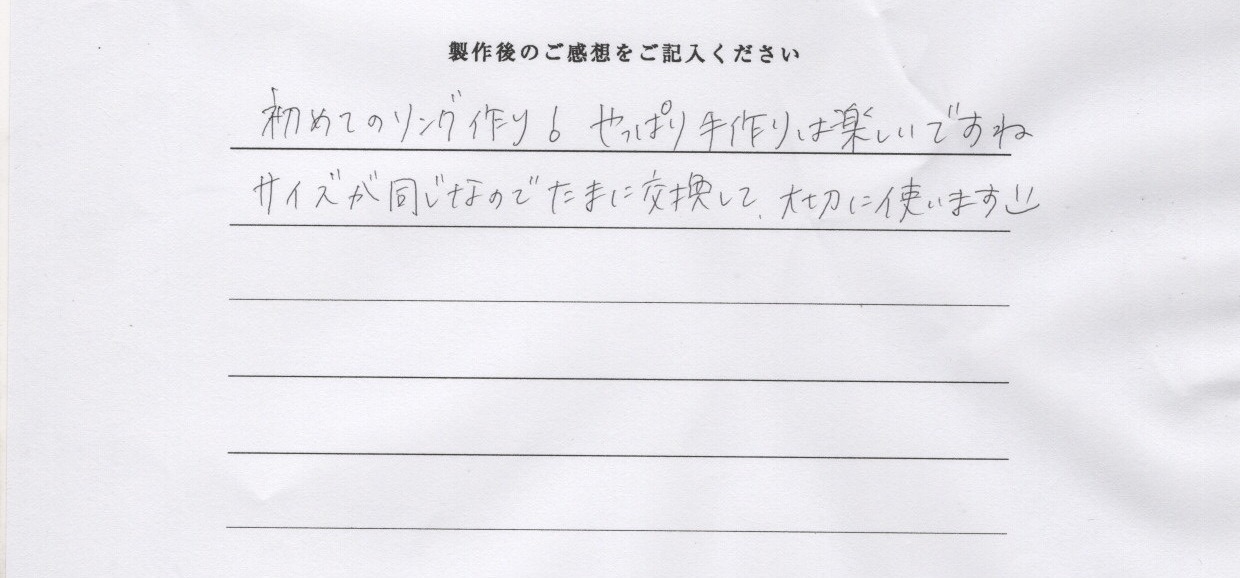 製作後のご感想をご記入ください
初めてのリング作り♪ やっぱり手作りは楽しいですね
サイズが同じなのでたまに交換して、大切に使います